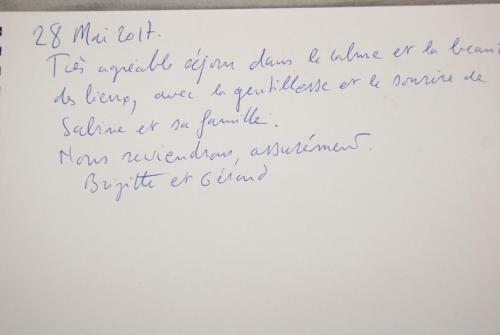 28 Mai 2017.
Très agréable séjour dans le calme et la beauté
des lieux, avec la gentillesse et le sourire de
Sabine et sa famille.
Nous reviendrons, assurément.
Brigitte et Gérard